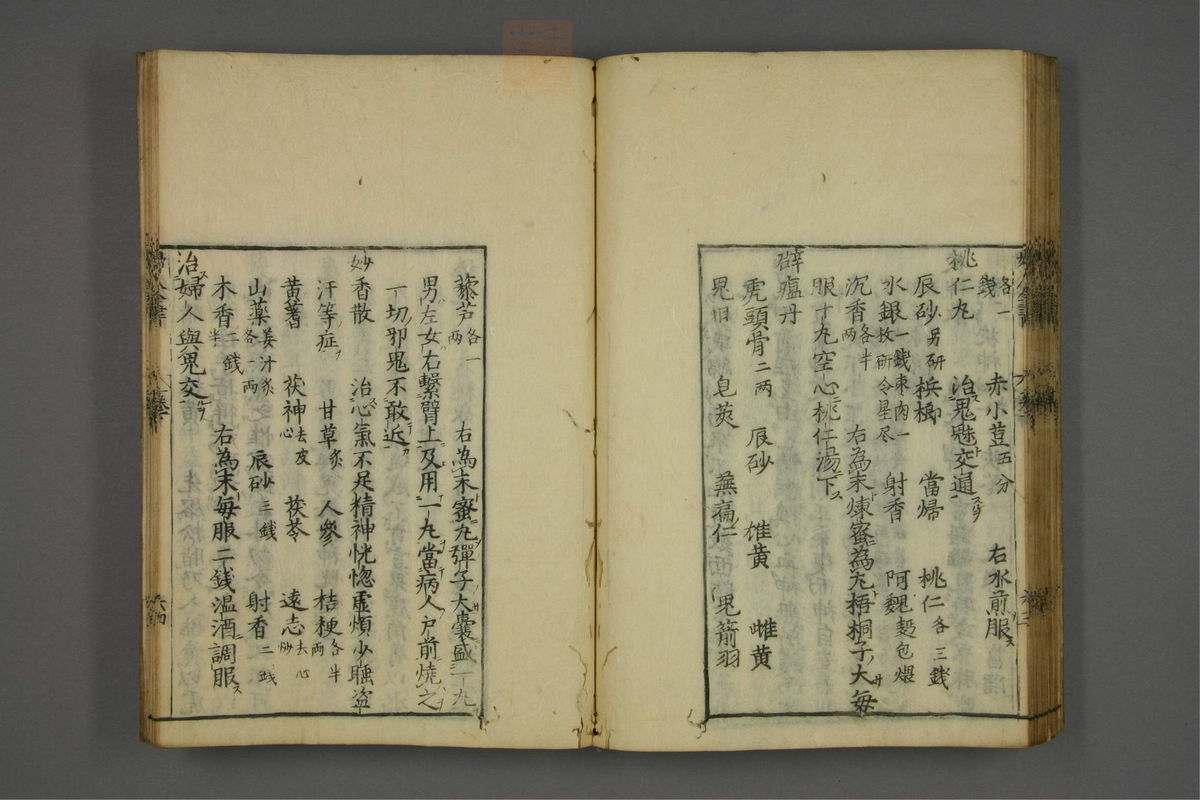 各一錢 赤小荳五分 右水煎服ス
桃仁丸 治鬼魅交通
辰砂另研 梹榔 當歸 桃仁各三錢
水銀一錢棗肉一枚研令星尽 射香 阿魏麪包煨
沉香各半两 右為末煉蜜為丸梧桐子大毎
服十九空心桃仁湯下ス
辟瘟丹
虎頭骨二两 辰砂 雄黄 雌黄
鬼臼 皂莢 蕪荑仁 鬼箭羽
藜芦各一两 右為末蜜丸彈子大囊盛一丸
男左女右繫臂上及用一丸當病人户前焼之
一切邪鬼不敢近
妙香散 治心氣不足精神恍惚虚煩少睡盗
汗等症 甘草炙 人參 桔梗各半两
黄蓍 茯神去皮心 茯苓 遠志去心炒
山藥姜汁炙各一两 辰砂三錢 射香二戋
木香二錢半 右為末毎服二錢温酒調服ス
治婦人與鬼交